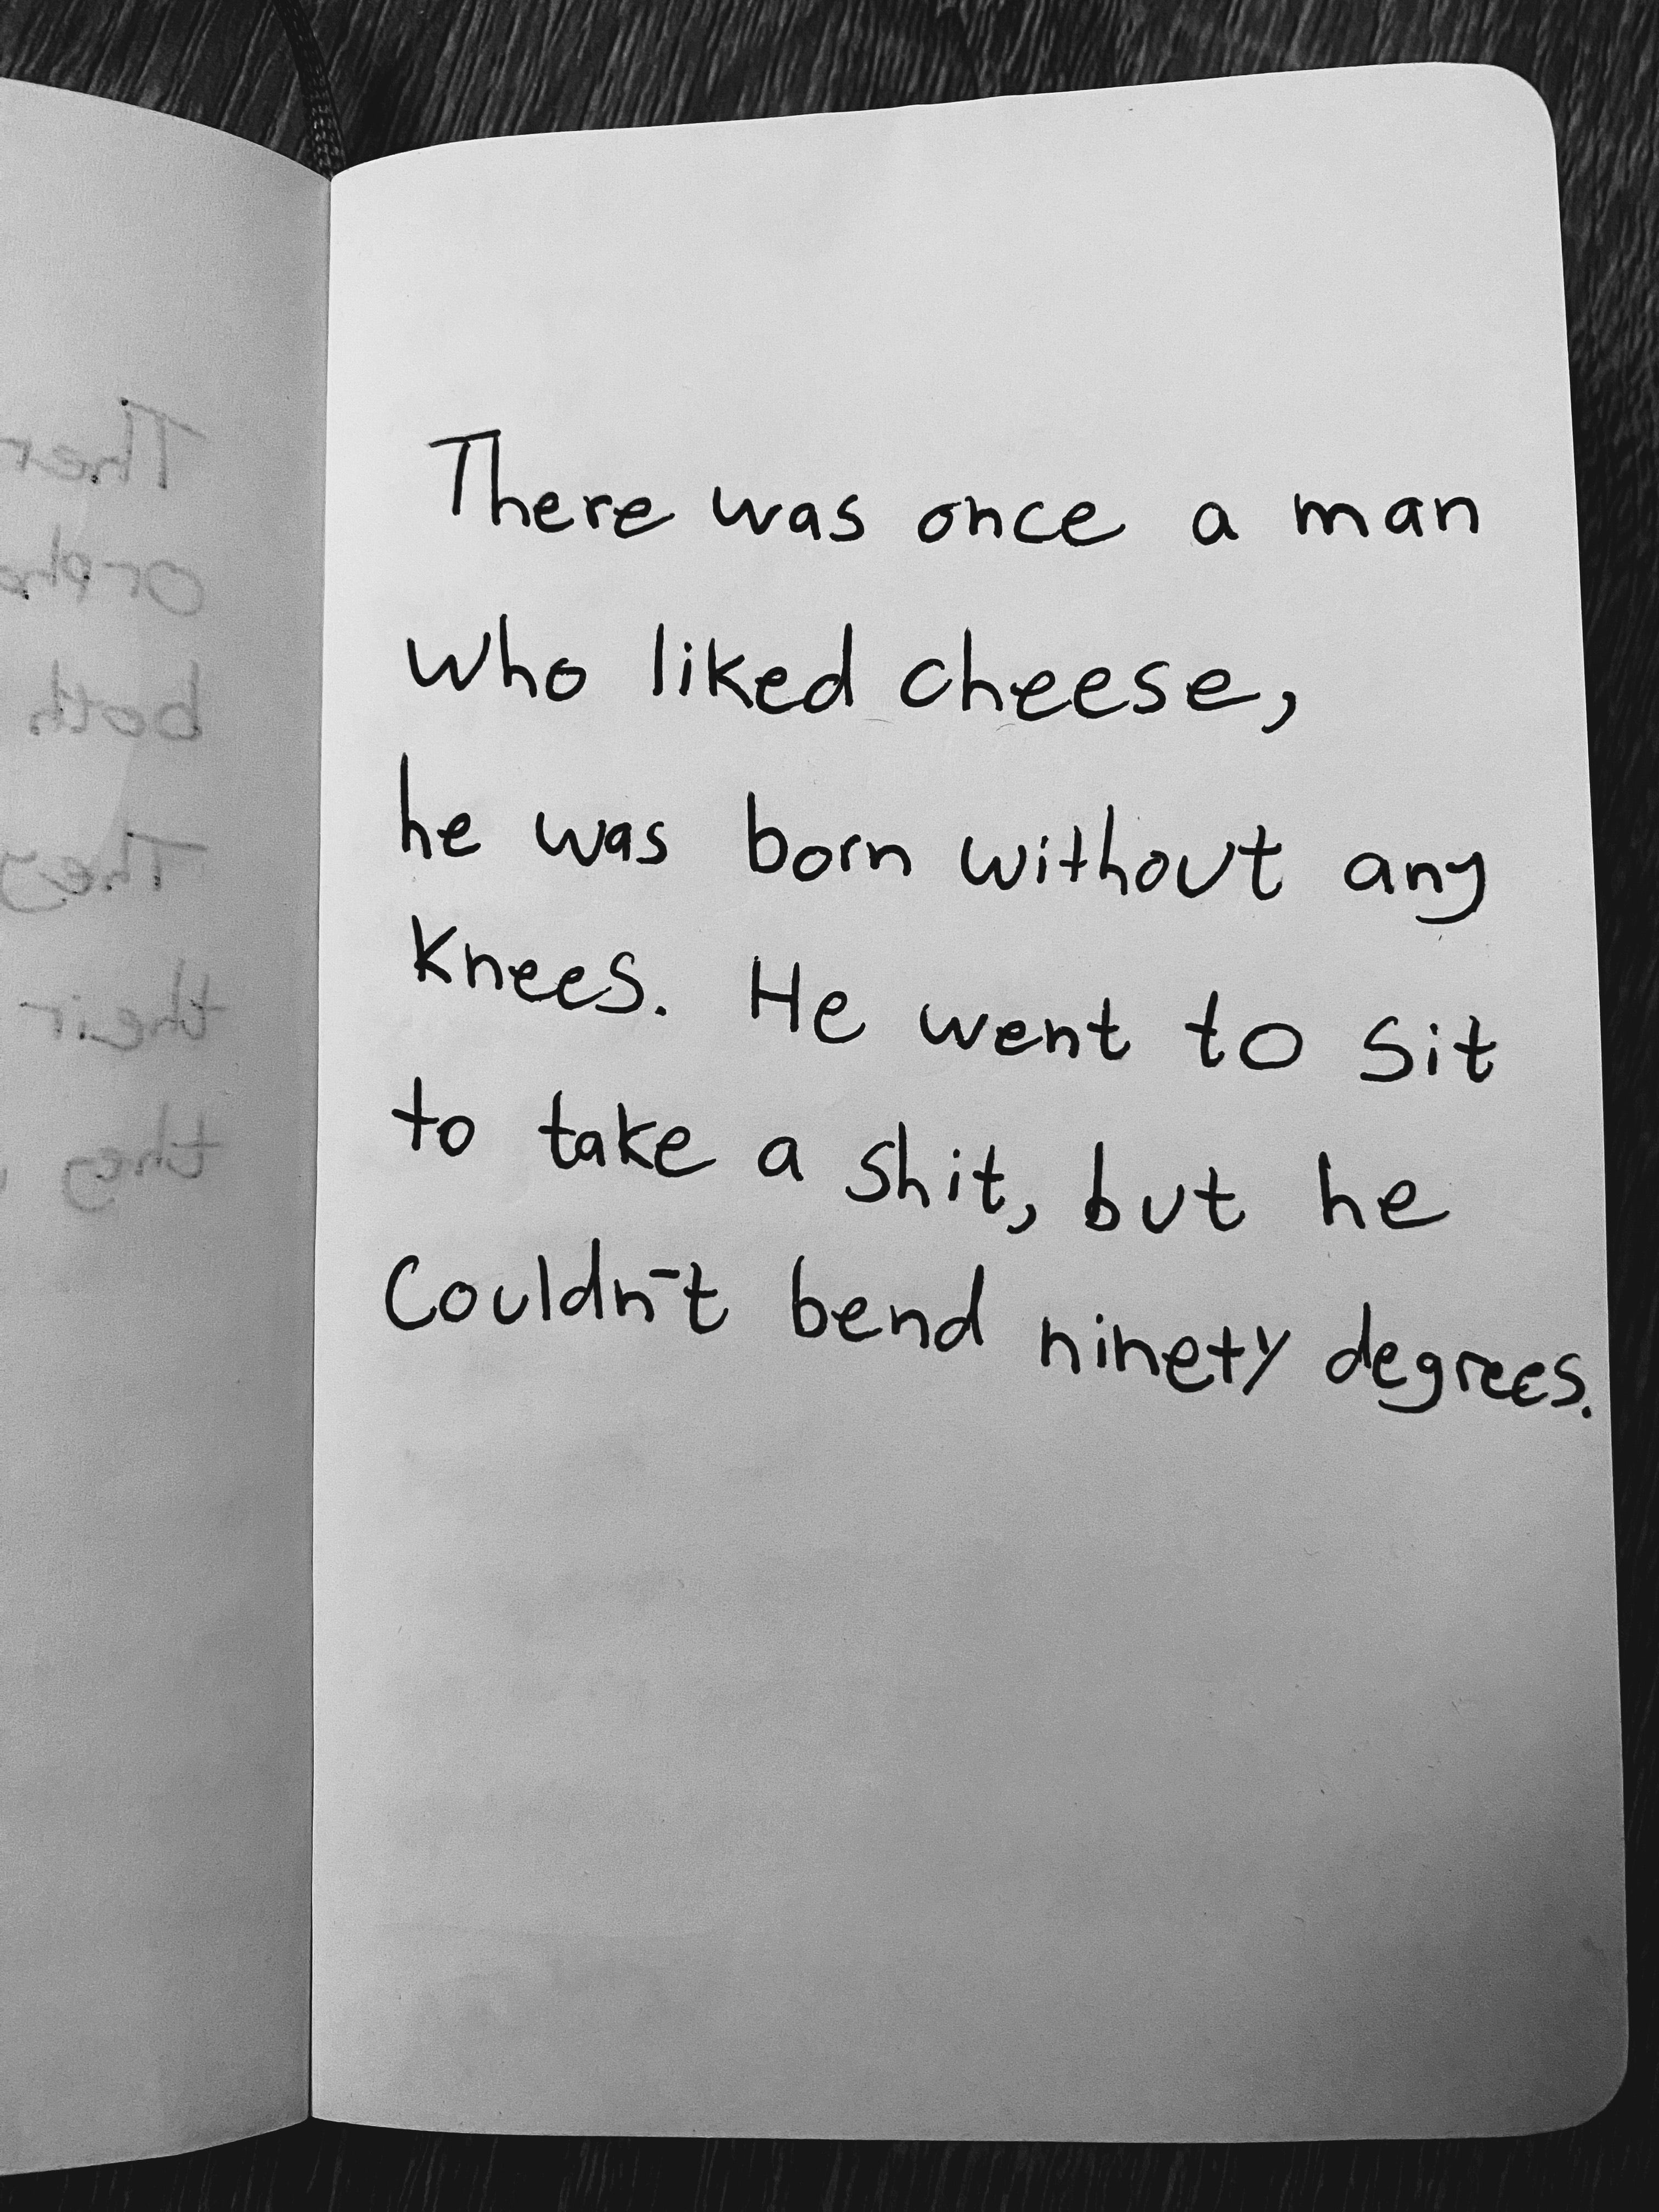 There was once a man
who liked cheese,
he was born without any
knees. He went to sit
to take a shit, but he
Couldn't bend ninety degrees.